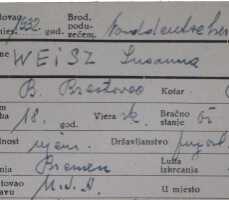 tovao 1932. god. Brod. podu- zećem. Norddeutscher
me WEISZ Susanna
B. Brestovac Kotar
18. god. Vjera rk. Bračno stanje
dnost njem. Državljanstvo jugosl.
nja Bremen Luka iskrcanja
tovao u U.S.A. U mjesto